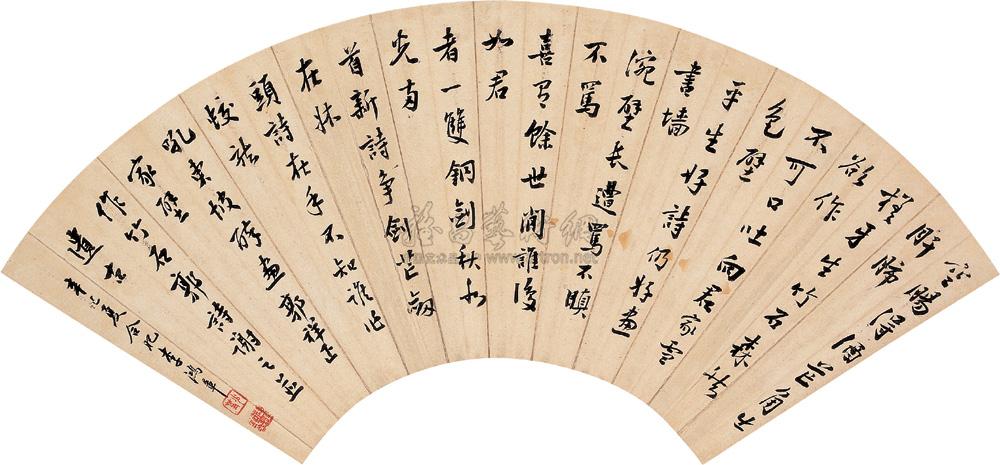 空腸得酒芒角生
肝肺
槎牙生竹石森然
欲作
不可口吐向君家雪
色壁
平生好詩仍好畫
書墻
涴壁長遭罵不瞋
不罵
喜有餘世間誰復
如君
者一雙銅劍秋水
光兩
首新詩爭劍芒劔
在牀
頭詩在手不知誰作
蛟龍
吼東坡醉畫郭祥正
家壁
作竹石郭詩謝之並
遺古
夏合肥李鴻章